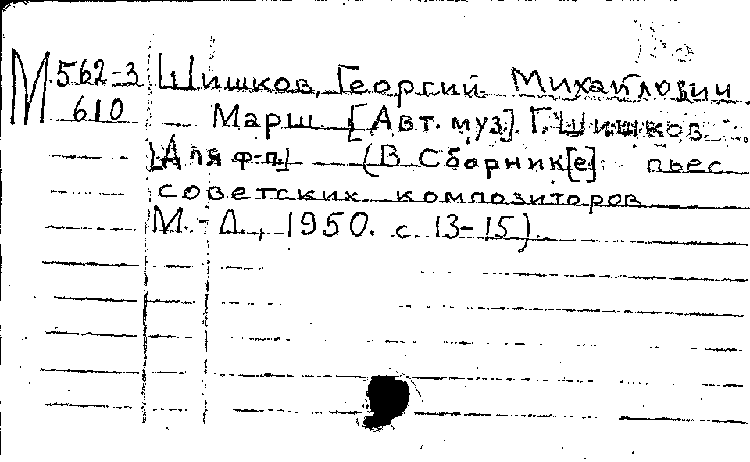 М 562-3 Шишков, Георгий Михайлович.
610 Марш [Авт. муз]. Г. Шишков
[Для ф-п.] (В Сборник[е] пьес
советских композиторов
М.-Л., 1950. с. 13-15).